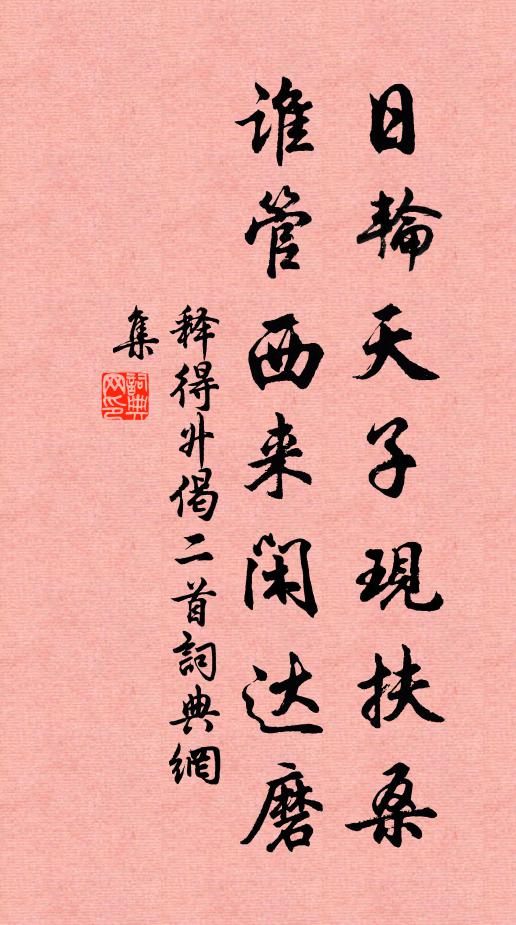 日輪天子現扶桑
誰管西来閑达磨
释得升偈二首詞典網
集
詞典
网印